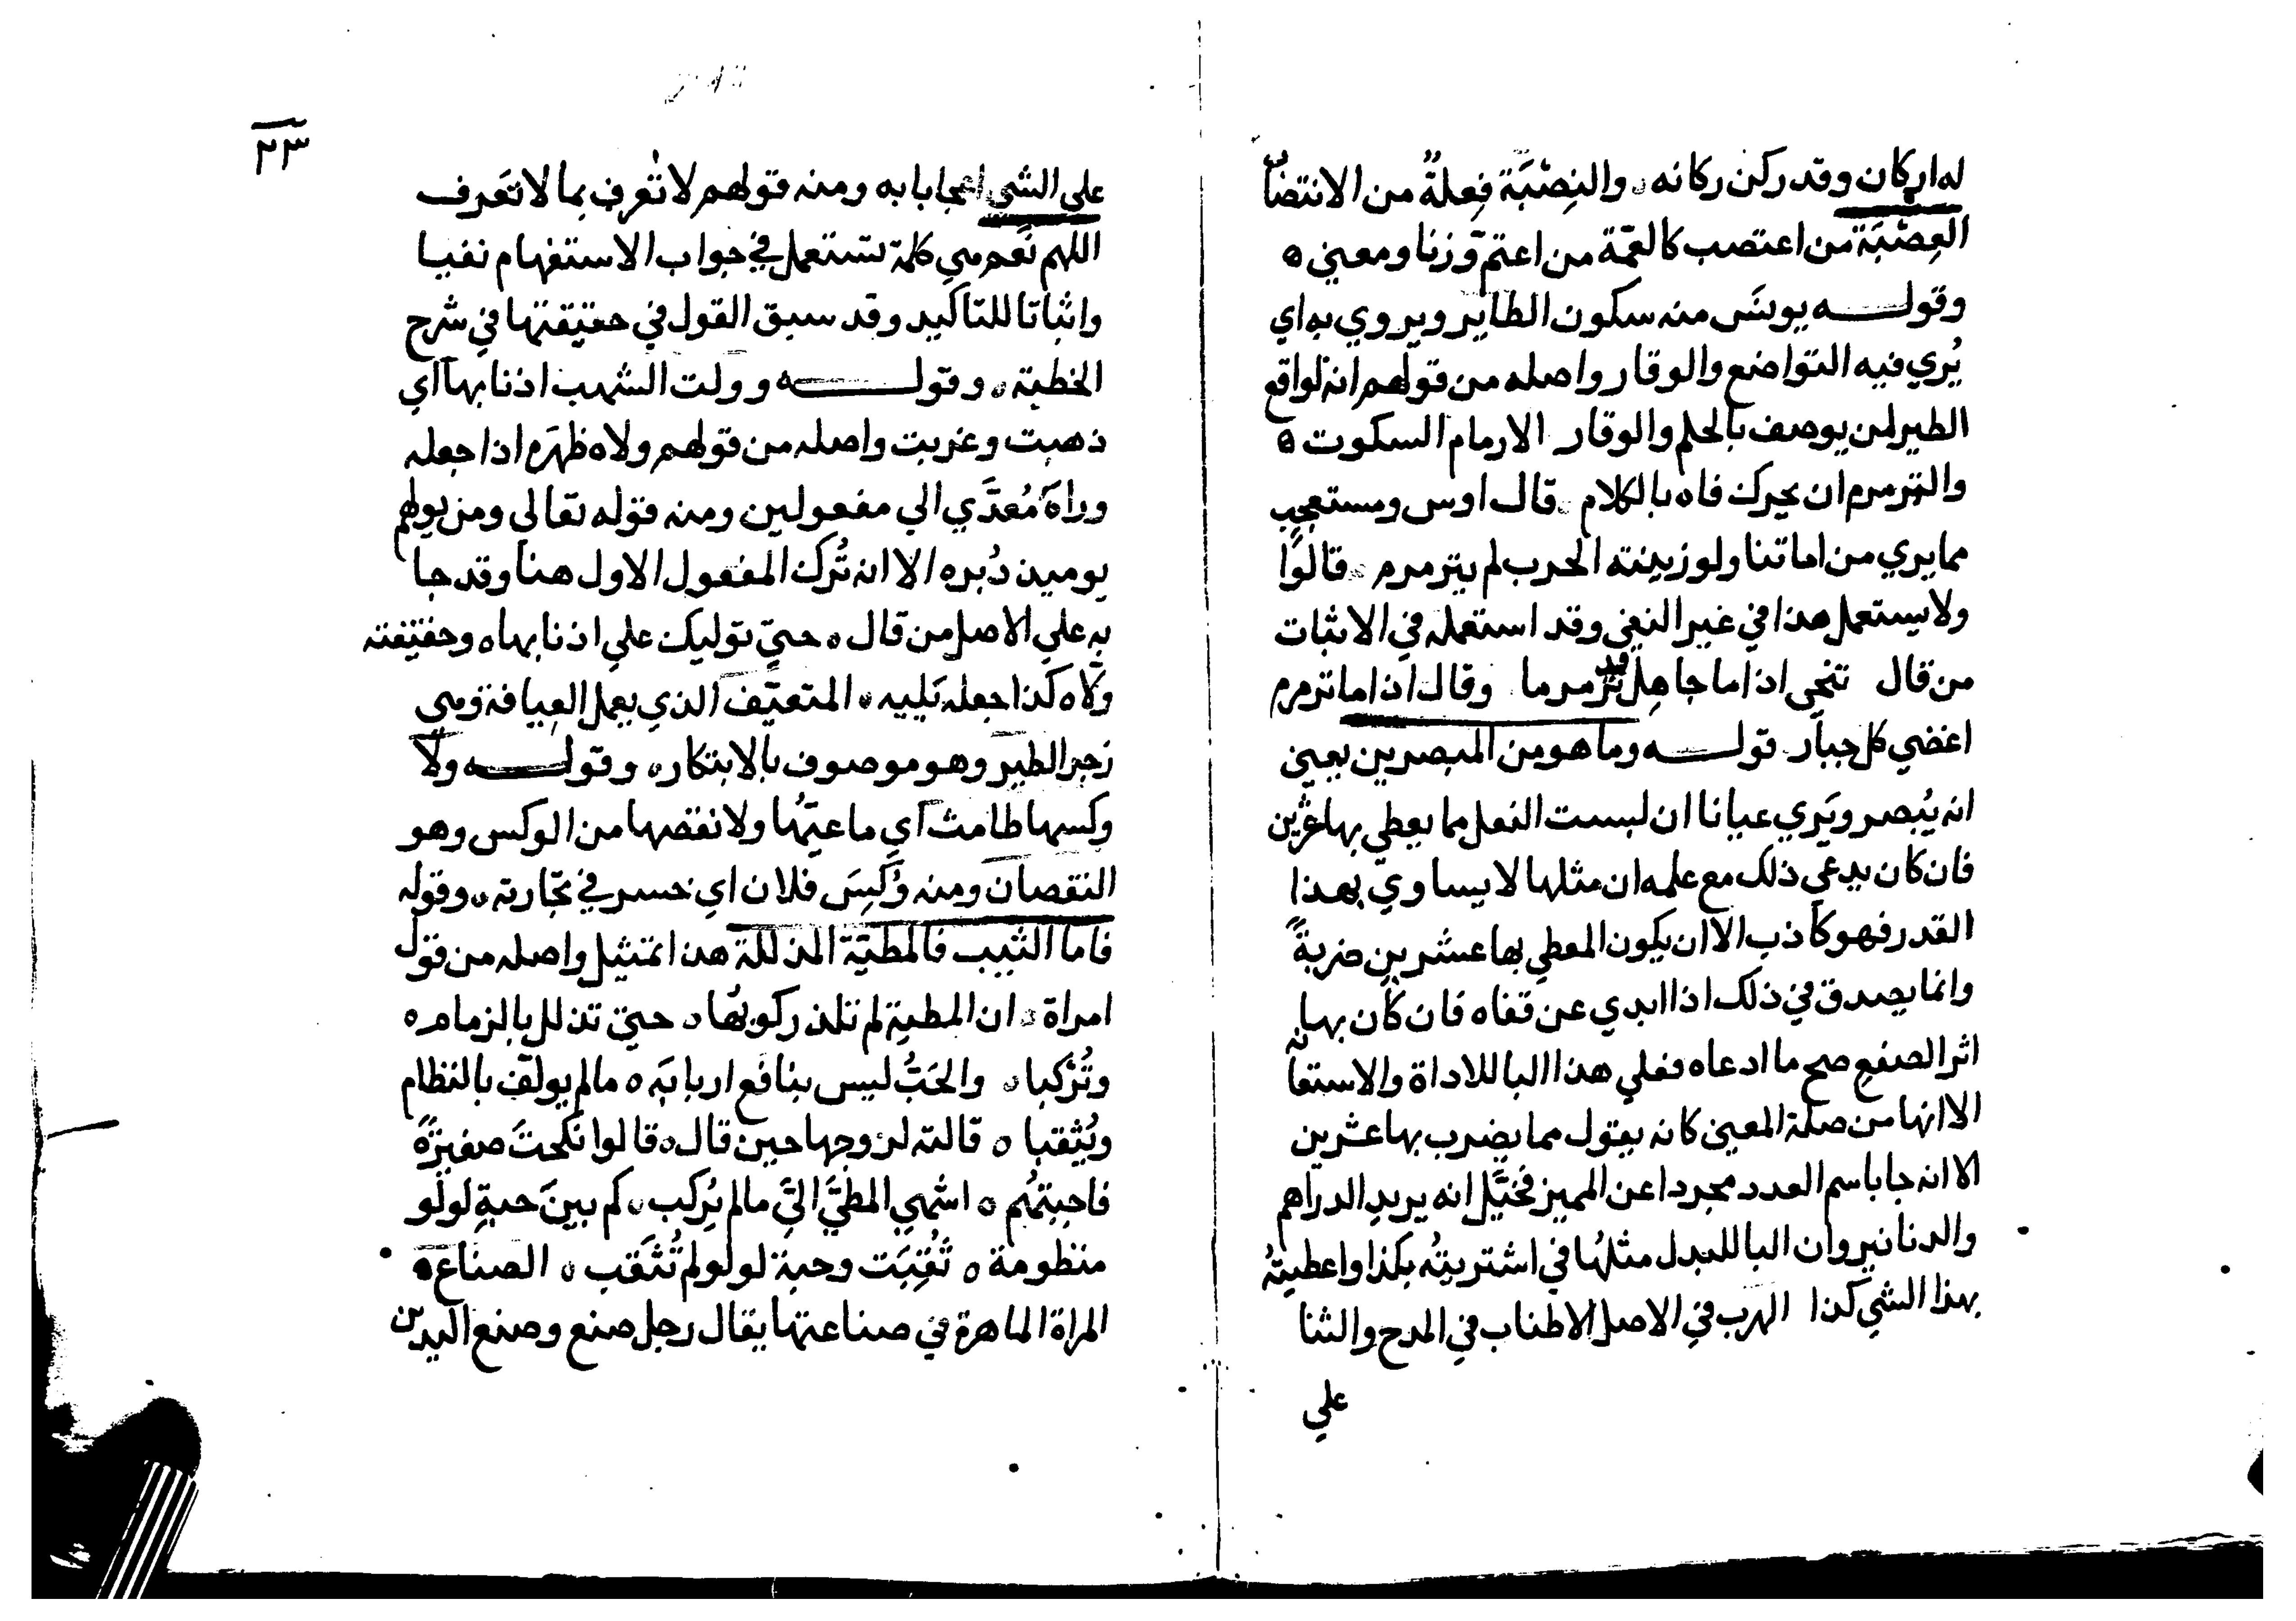 له اركان وقد ركن ركانه والنِصْبَة فِعلةٌ من الانتصاب
العِصْبَة من اعتصب كالعمّة من اعتمّ وزنا ومعني ه
وقولـــه يونسَ منه سكون الطاير ويروي به اي
يُري فيه التواضع والوقار واصله من قولهم انه لواقع
الطير لمن يوصف بالحلم والوقار الارمام السكوت ه
والترمرم ان يحرك فاه بالكلام قال اوس ومستعجب
مما يري من اناتنا ولو زبنته الحرب لم يترمرم قالوا
ولا يستعمل هذا في غير النفي وقد استعمله في الاثبات
من قال تنحي اذا ما جاهل قد ترمرما وقال اذا ما ترمرم
اغضي كل جبار قولـــه وما هو من المبصرين يعني
انه يُبصر ويَري عيانا ان لبست النعل مما يعطي بها عشرين
فان كان يدعي ذلك مع علمه ان مثلها لا يساوي بهذا
القدر فهو كاذب الا ان يكون المعطي بها عشرين ضربةً
وانما يصدق في ذلك اذا ابدي عن قفاه فان كان بها
اثر الصفع صح ما ادعاه فعلي هذا البا للاداة والاستعانه
الا انها من صلة المعني كانه يقول مما يضرب بها عشرين
الا انه جا باسم العدد مجردا عن المميز فخيَّل انه يريد الدراهم
والدنانير وان البا للبدل مثلها في اشتريته بكذا واعطيتهُ
بهذا الشي كذا الهرب في الاصل الاطناب في المدح والثنا
علي
٢٣
علي الشي اعجابا به ومنه قولهم لا تَهرِف بما لا تَعرف
اللهم نَعم هي كلمة تستعمل في جواب الاستفهام نفيا
واثباتا للتاكيد وقد سبق القول في حقيقتها في شرح
الخطبة ه وقولـــه وولت الشهب اذنابها اي
ذهبت وغربت واصله من قولهم ولاه ظهرَه اذا جعله
وراه مُعدَّي الي مفعولين ومنه قوله تعالي ومن يولهم
يوميذ دُبره الا انه تُرك المفعول الاول هنا وقد جا
به علي الاصل من قال ه حتي توليك علي اذنابها ه وحقيقته
ولّاه كذا جعله يَليه ه المتعيّف الذي يعمل العيافة وهي
زجر الطير وهو موصوف بالابتكار ه وقولـــه ولا
وكسها طامث اي ما عيّبها ولا نقصها من الوكس وهو
النقصان ومنه وُكِسَ فلان اي خسر في تجارته ه وقوله
فاما الثيب فالمطيّة المذللة هذا تمثيل واصله من قول
امراة ه ان المطية لم تلذ ركوبها ه حتي تذلل بالزمام ه
وتُرْكبا ه والحَبُّ ليس بنافع اربابَه ه ما لم يولّف بالنظام
ويُثقبا ه قالته لزوجها حين قال ه قالوا نكحتَ صغيرةً
فاجبتهُم ه اشهي المطيِّ اليَّ ما لم يُركب ه كم بينَ حبةِ لولو
منظومة ه ثُقِبَت وحبة لولو لم تُثقَب ه الصناع ه
المراة الماهرة في صناعتها يقال رجل صنع وصنع اليدين